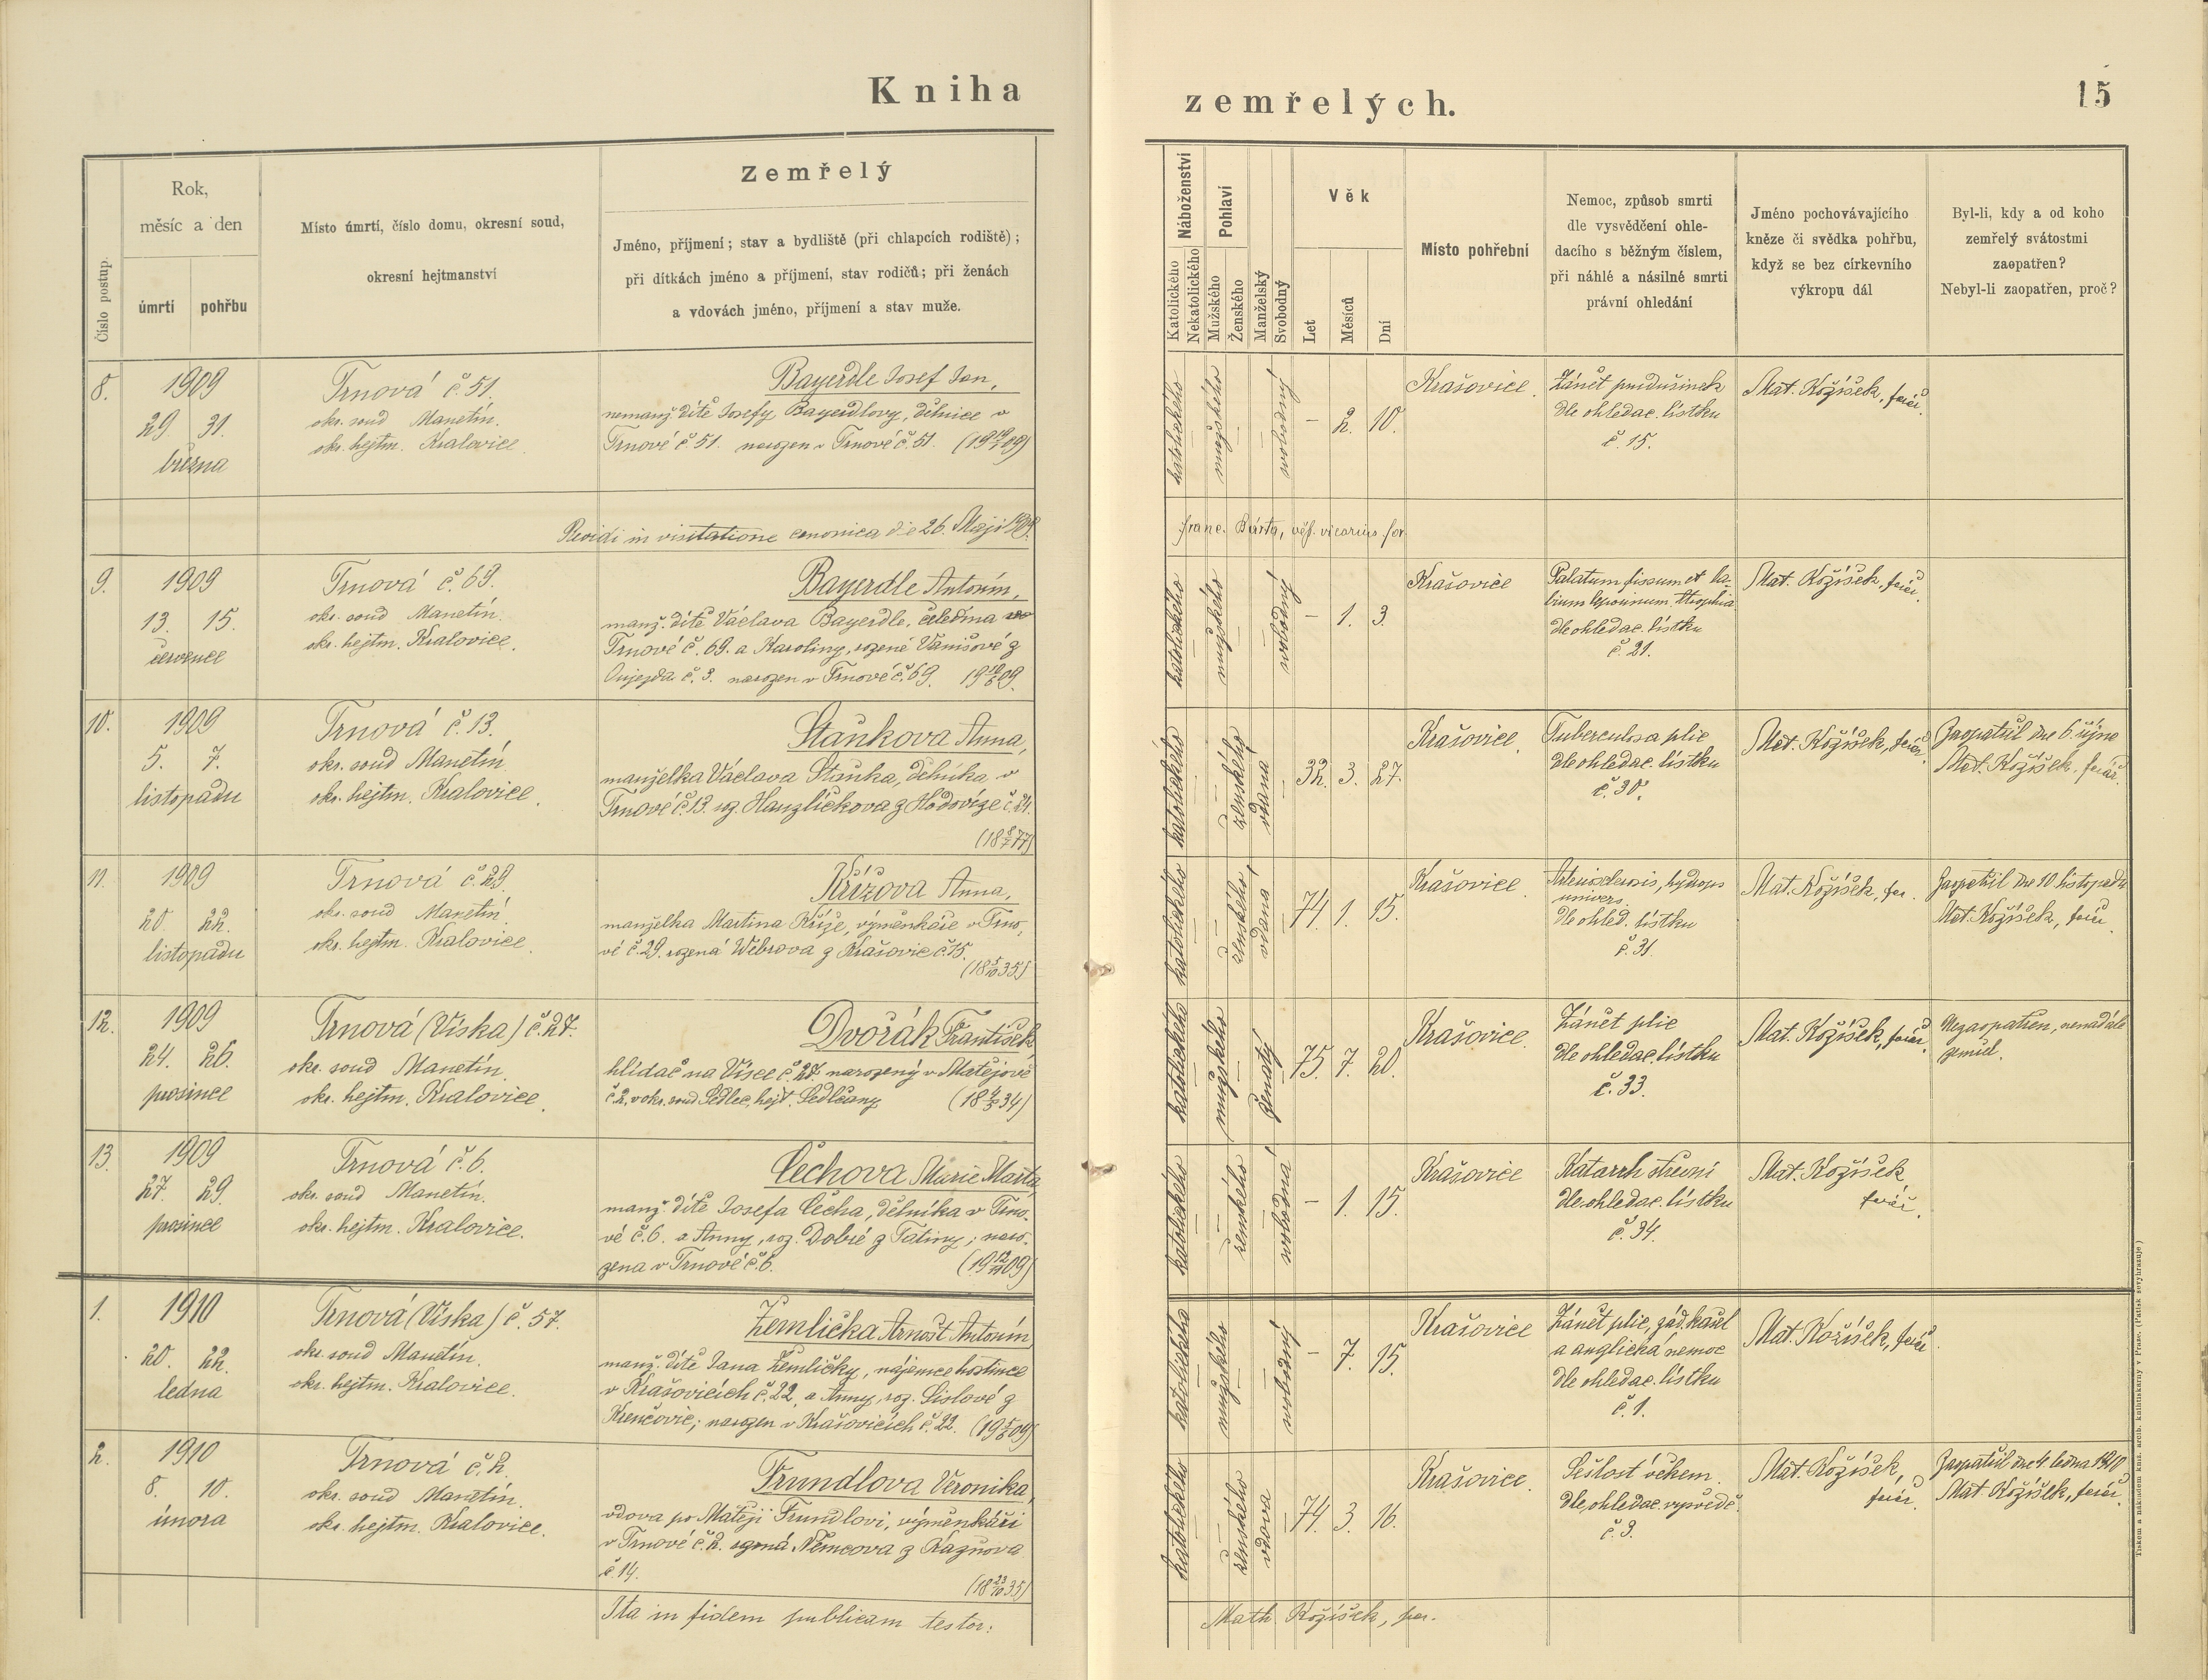 Kniha
zemřelých.
15
Číslo postup.
Rok,
měsíc a den
úmrtí
pohřbu
Místo úmrtí, číslo domu, okresní soud,
okresní hejtmanství
Zemřelý
Jméno, příjmení; stav a bydliště (při chlapcích rodiště);
při dítkách jméno a příjmení, stav rodičů; při ženách
a vdovách jméno, příjmení a stav muže.
Náboženství
Katolického
Nekatolického
Pohlaví
Mužského
Ženského
Manželský
Svobodný
Věk
Let
Měsíců
Dní
Místo pohřební
Nemoc, způsob smrti
dle vysvědčení ohle-
dacího s běžným číslem,
při náhlé a násilné smrti
právní ohledání
Jméno pochovávajícího
kněze či svědka pohřbu,
když se bez církevního
výkropu dál
Byl-li, kdy a od koho
zemřelý svátostmi
zaopatřen?
Nebyl-li zaopatřen, proč?
8.
1909
29. 31.
března
Trnová č. 51.
okr. soud Manetín.
okr. hejtm. Kralovice.
Bayerdle Josef Jan,
nemanž. dítě Josefy Bayerdlovy, dělnice v
Trnové č. 51. narozen v Trnové č. 51. (19 19/1 09)
katolického
mužského
svobodný
– 2. 10.
Krašovice.
Zánět průdušinek
dle ohledac. lístku
č. 15.
Mat. Kožíšek, farář.
Revidi in visitatione canonica die 26. Maji 1909.
Franc. Bárta, vicarius for.
9.
1909
13. 15.
července
Trnová č. 69.
okr. soud Manetín.
okr. hejtm. Kralovice.
Bayerdle Antonín,
manž. dítě Václava Bayerdle, čeledína v
Trnové č. 69. a Karoliny, rozené Vaníšové z
Oujezda č. 3. narozen v Trnové č. 69. 19 10/6 09.
katolického
mužského
svobodný
– 1. 3.
Krašovice
Palatum fissum et la-
bium leporinum. Atrophia
dle ohledac. lístku
č. 21.
Mat. Kožíšek, farář.
10.
1909
5. 7.
listopadu
Trnová č. 13.
okr. soud Manetín
okr. hejtm. Kralovice.
Staňkova Anna,
manželka Václava Staňka, dělníka v
Trnové č. 13. roz. Hanzlíčkova z Hodovíze č. 21.
(18 8/7 77)
katolického
ženského
vdaná
32. 3. 27.
Krašovice.
Tuberculosa plic
dle ohledac. lístku
č. 30.
Mat. Kožíšek, farář.
Zaopatřil dne 6. října
Mat. Kožíšek, farář.
11.
1909
20. 22.
listopadu
Trnová č. 29.
okr. soud Manetín.
okr. hejtm. Kralovice.
Křížova Anna,
manželka Martina Kříže, výměnkáře v Trno-
vé č. 29. rozená Webrova z Krašovic č. 15.
(18 5/10 35)
katolického
ženského
vdaná
74. 1. 15.
Krašovice.
Arteriosclerosis, hydrops
univers.
dle ohled. lístku
č. 31.
Mat. Kožíšek, far.
Zaopatřil dne 10 listopadu
Mat. Kožíšek, farář.
12.
1909
24. 26.
prosince
Trnová (Víska) č. 27.
okr. soud Manetín.
okr. hejtm. Kralovice.
Dvořák František
hlídač na Vísce č. 27. narozený v Matějově
č. 2, v okr. soud Sedlec, hejt. Sedlčany (18 4/5 34)
katolického
mužského
ženatý
75. 7. 20.
Krašovice.
Zánět plic
dle ohledac. lístku
č. 33.
Mat. Kožíšek, farář.
Nezaopatřen, nenadále
zemřel.
13.
1909
27. 29.
prosince
Trnová č. 6.
okr. soud Manetín.
okr. hejtm. Kralovice.
Čechova Marie Marta
manž. dítě Josefa Čecha, dělníka v Trno-
vé č. 6. a Anny, roz. Dobré z Tatiny; naro-
zena v Trnové č. 6. (19 12/11 09)
katolického
ženského
svobodná
– 1. 15.
Krašovice
Katarrh střevní
dle ohledac. lístku
č. 34.
Mat. Kožíšek
farář.
1.
1910
20. 22.
ledna
Trnová (Víska) č. 57.
okr. soud Manetín.
okr. hejtm. Kralovice.
Žemlička Arnošt Antonín,
manž. dítě Jana Žemličky, nájemce hostince
v Krašovicích č. 22, a Anny, roz. Sislové z
Křenčovic; narozen v Krašovicích č. 22. (19 5/6 09)
katolického
mužského
svobodný
– 7. 15.
Krašovice
Zánět plic, zád. kašel
a anglická nemoc
dle ohledac. lístku
č. 1.
Mat. Kožíšek, farář.
2.
1910
8. 10.
února
Trnová č. 2.
okr. soud Manetín.
okr. hejtm. Kralovice.
Trundlova Veronika,
vdova po Matěji Trundlovi, výměnkáři
v Trnové č. 2. rozená Němcova z Kaznova
č. 14.
(18 23/10 35)
katolického
ženského
vdova
74. 3. 16.
Krašovice.
Sešlost věkem.
dle ohledac. vysvědč.
č. 3.
Mat. Kožíšek,
farář.
Zaopatřil dne 4. ledna 1910
Mat. Kožíšek, farář.
Ita in fidem publicam testor:
Math. Kožíšek, par.